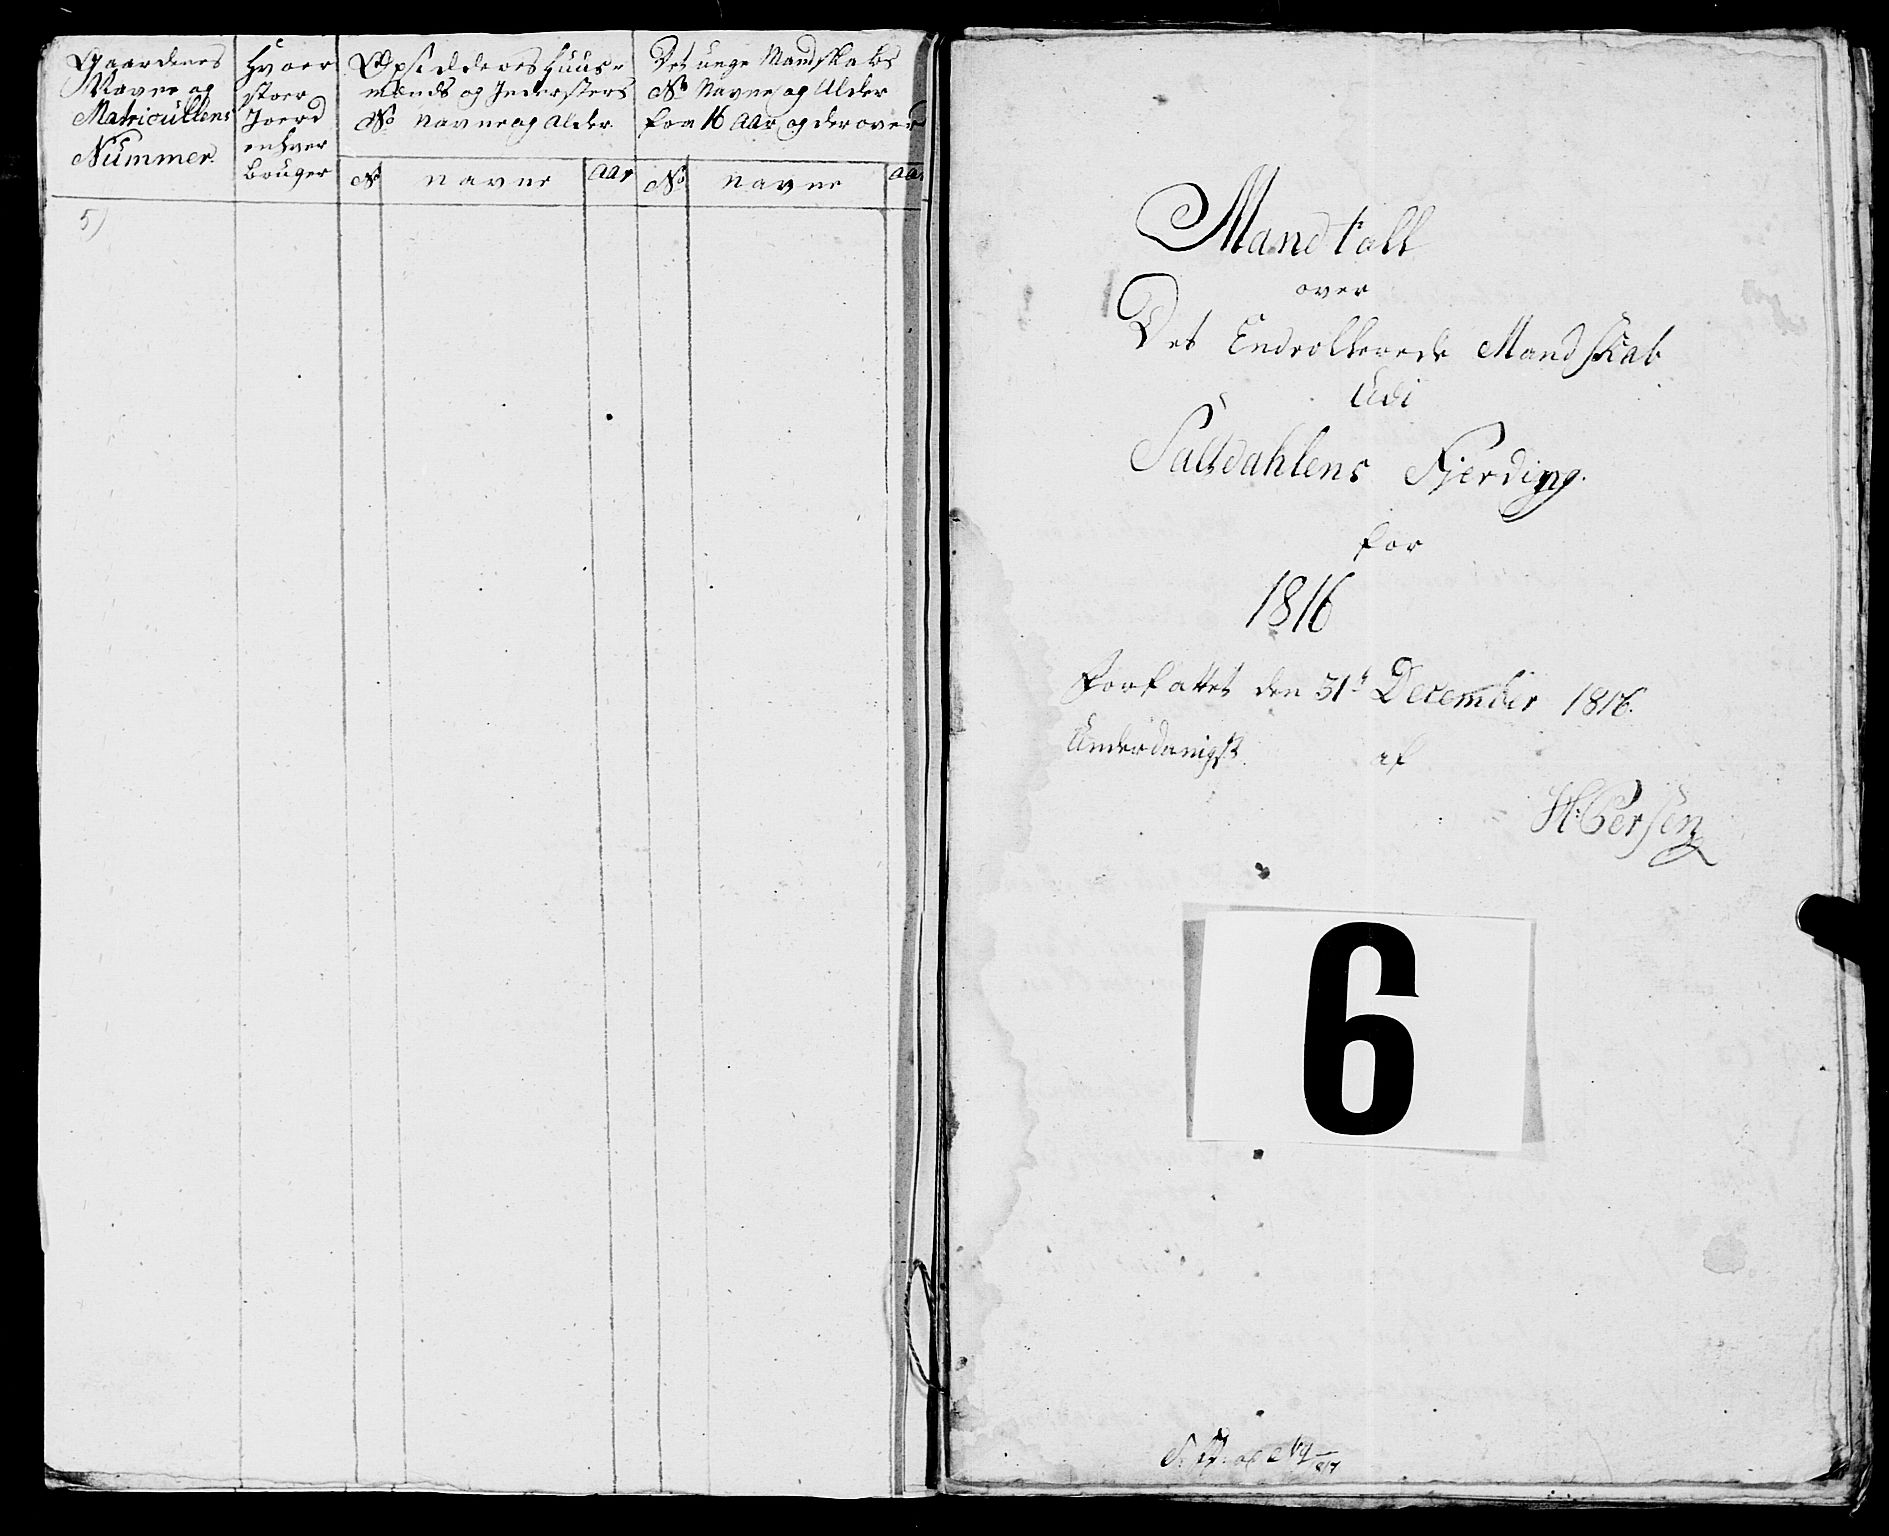 Gaardenes
Navne og
Matricullens
Nummer.
Hvoer
stoer
Joerd
enhver
bruger
Opsiddernes Huus-
mænds og Indersters
No Navne og Alder
Det unge Mandskabs
No Navne og Alder
fra 16 Aar og derover
No
Navne
Aar
No
Navne
Aar
5)
Mandtall
over
Det Enrollerede Mandskab
Udi
Saltdahlens Fjerding.
for
1816
Forfattet den 31t December 1816.
Underdanigst af
H: Persen
6